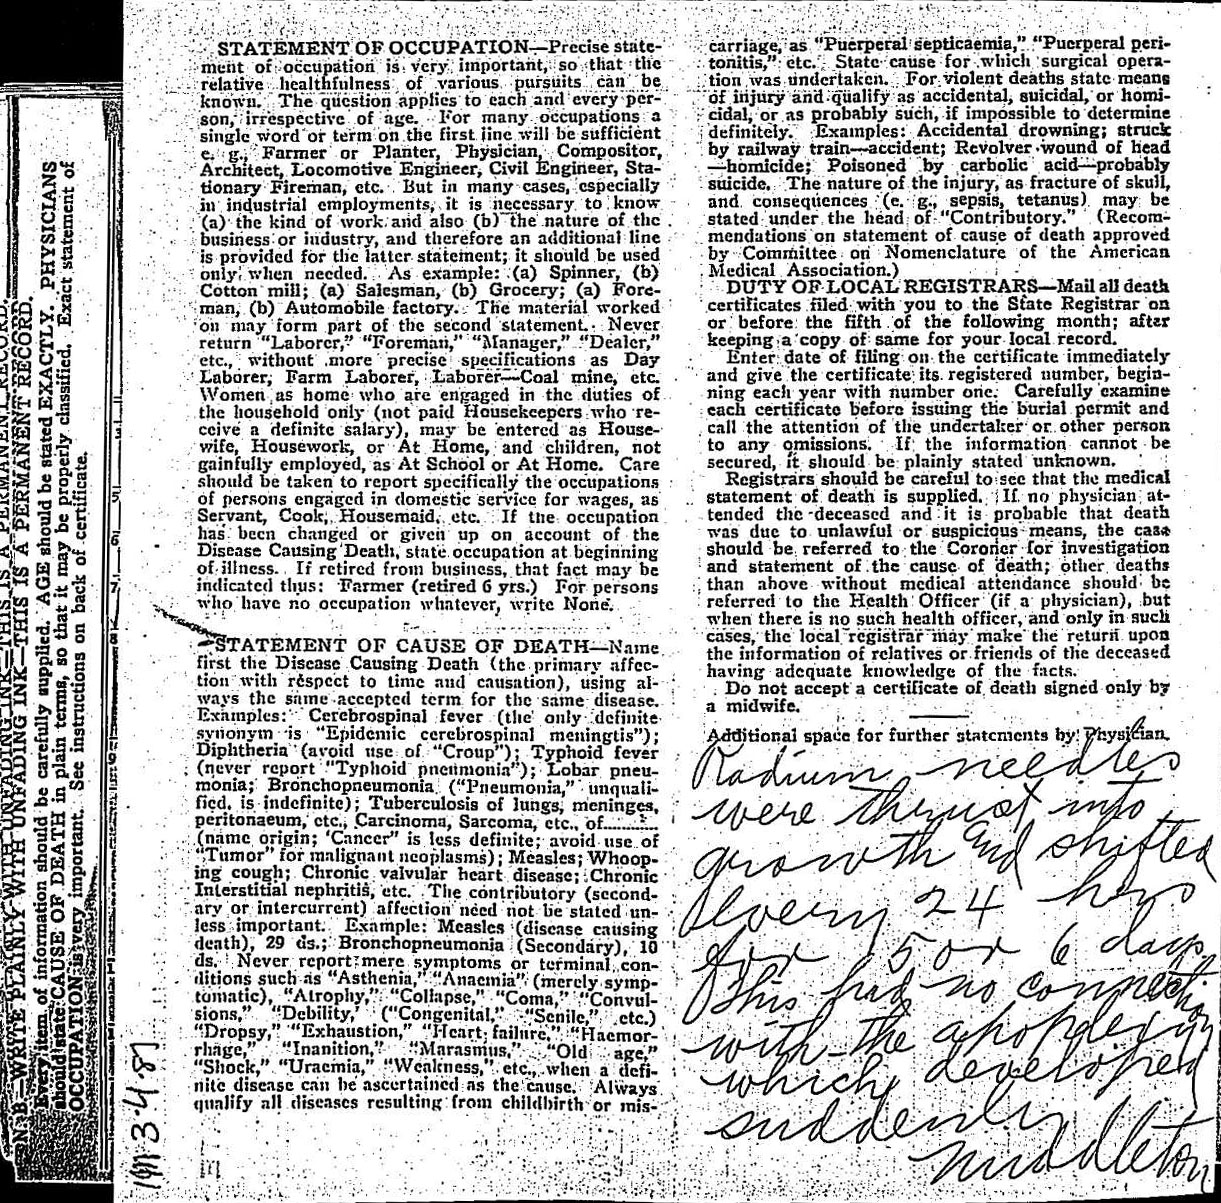 N. B.—WRITE PLAINLY WITH UNFADING INK—THIS IS A PERMANENT RECORD.
Every item of information should be carefully supplied. AGE should be stated EXACTLY. PHYSICIANS
should state CAUSE OF DEATH in plain terms, so that it may be properly classified. Exact statement of
OCCUPATION is very important. See instructions on back of certificate.
STATEMENT OF OCCUPATION—Precise state-
ment of occupation is very important, so that the
relative healthfulness of various pursuits can be
known. The question applies to each and every per-
son, irrespective of age. For many occupations a
single word or term on the first line will be sufficient
e. g., Farmer or Planter, Physician, Compositor,
Architect, Locomotive Engineer, Civil Engineer, Sta-
tionary Fireman, etc. But in many cases, especially
in industrial employments, it is necessary to know
(a) the kind of work and also (b) the nature of the
business or industry, and therefore an additional line
is provided for the latter statement; it should be used
only when needed. As example: (a) Spinner, (b)
Cotton mill; (a) Salesman, (b) Grocery; (a) Fore-
man, (b) Automobile factory. The material worked
on may form part of the second statement. Never
return "Laborer," "Foreman," "Manager," "Dealer,"
etc., without more precise specifications as Day
Laborer, Farm Laborer, Laborer—Coal mine, etc.
Women as home who are engaged in the duties of
the household only (not paid Housekeepers who re-
ceive a definite salary), may be entered as House-
wife, Housework, or At Home, and children, not
gainfully employed, as At School or At Home. Care
should be taken to report specifically the occupations
of persons engaged in domestic service for wages, as
Servant, Cook, Housemaid, etc. If the occupation
has been changed or given up on account of the
Disease Causing Death, state occupation at beginning
of illness. If retired from business, that fact may be
indicated thus: Farmer (retired 6 yrs.) For persons
who have no occupation whatever, write None.
STATEMENT OF CAUSE OF DEATH—Name
first the Disease Causing Death (the primary affec-
tion with respect to time and causation), using al-
ways the same accepted term for the same disease.
Examples: Cerebrospinal fever (the only definite
synonym is "Epidemic cerebrospinal meningtis");
Diphtheria (avoid use of "Croup"); Typhoid fever
(never report "Typhoid pneumonia"); Lobar pneu-
monia; Bronchopneumonia ("Pneumonia," unquali-
fied, is indefinite); Tuberculosis of lungs, meninges,
peritonaeum, etc., Carcinoma, Sarcoma, etc., of............
(name origin; 'Cancer" is less definite; avoid use of
"Tumor" for malignant neoplasms); Measles; Whoop-
ing cough; Chronic valvular heart disease; Chronic
Interstitial nephritis, etc. The contributory (second-
ary or intercurrent) affection need not be stated un-
less important. Example: Measles (disease causing
death), 29 ds.; Bronchopneumonia (Secondary), 10
ds. Never report mere symptoms or terminal con-
ditions such as "Asthenia," "Anaemia" (merely symp-
tomatic), "Atrophy," "Collapse," "Coma," "Convul-
sions," "Debility," ("Congenital," "Senile," etc.)
"Dropsy," "Exhaustion," "Heart failure," "Haemor-
rhage," "Inanition," "Marasmus," "Old age,"
"Shock," "Uraemia," "Weakness," etc., when a defi-
nite disease can be ascertained as the cause. Always
qualify all diseases resulting from childbirth or mis-
carriage, as "Puerperal septicaemia," "Puerperal peri-
tonitis," etc. State cause for which surgical opera-
tion was undertaken. For violent deaths state means
of injury and qualify as accidental, suicidal, or homi-
cidal, or as probably such, if impossible to determine
definitely. Examples: Accidental drowning; struck
by railway train—accident; Revolver wound of head
—homicide; Poisoned by carbolic acid—probably
suicide. The nature of the injury, as fracture of skull,
and consequences (e. g., sepsis, tetanus) may be
stated under the head of "Contributory." (Recom-
mendations on statement of cause of death approved
by Committee on Nomenclature of the American
Medical Association.)
DUTY OF LOCAL REGISTRARS—Mail all death
certificates filed with you to the State Registrar on
or before the fifth of the following month; after
keeping a copy of same for your local record.
Enter date of filing on the certificate immediately
and give the certificate its registered number, begin-
ning each year with number one. Carefully examine
each certificate before issuing the burial permit and
call the attention of the undertaker or other person
to any omissions. If the information cannot be
secured, it should be plainly stated unknown.
Registrars should be careful to see that the medical
statement of death is supplied. If no physician at-
tended the deceased and it is probable that death
was due to unlawful or suspicious means, the case
should be referred to the Coroner for investigation
and statement of the cause of death; other deaths
than above without medical attendance should be
referred to the Health Officer (if a physician), but
when there is no such health officer, and only in such
cases, the local registrar may make the return upon
the information of relatives or friends of the deceased
having adequate knowledge of the facts.
Do not accept a certificate of death signed only by
a midwife.
Additional space for further statements by Physician.
Radium needles
were thrust into
growth and shifted
every 24 hrs
for 5 or 6 days
This had no connection
with the apoplexy
which developed
suddenly
Middleton